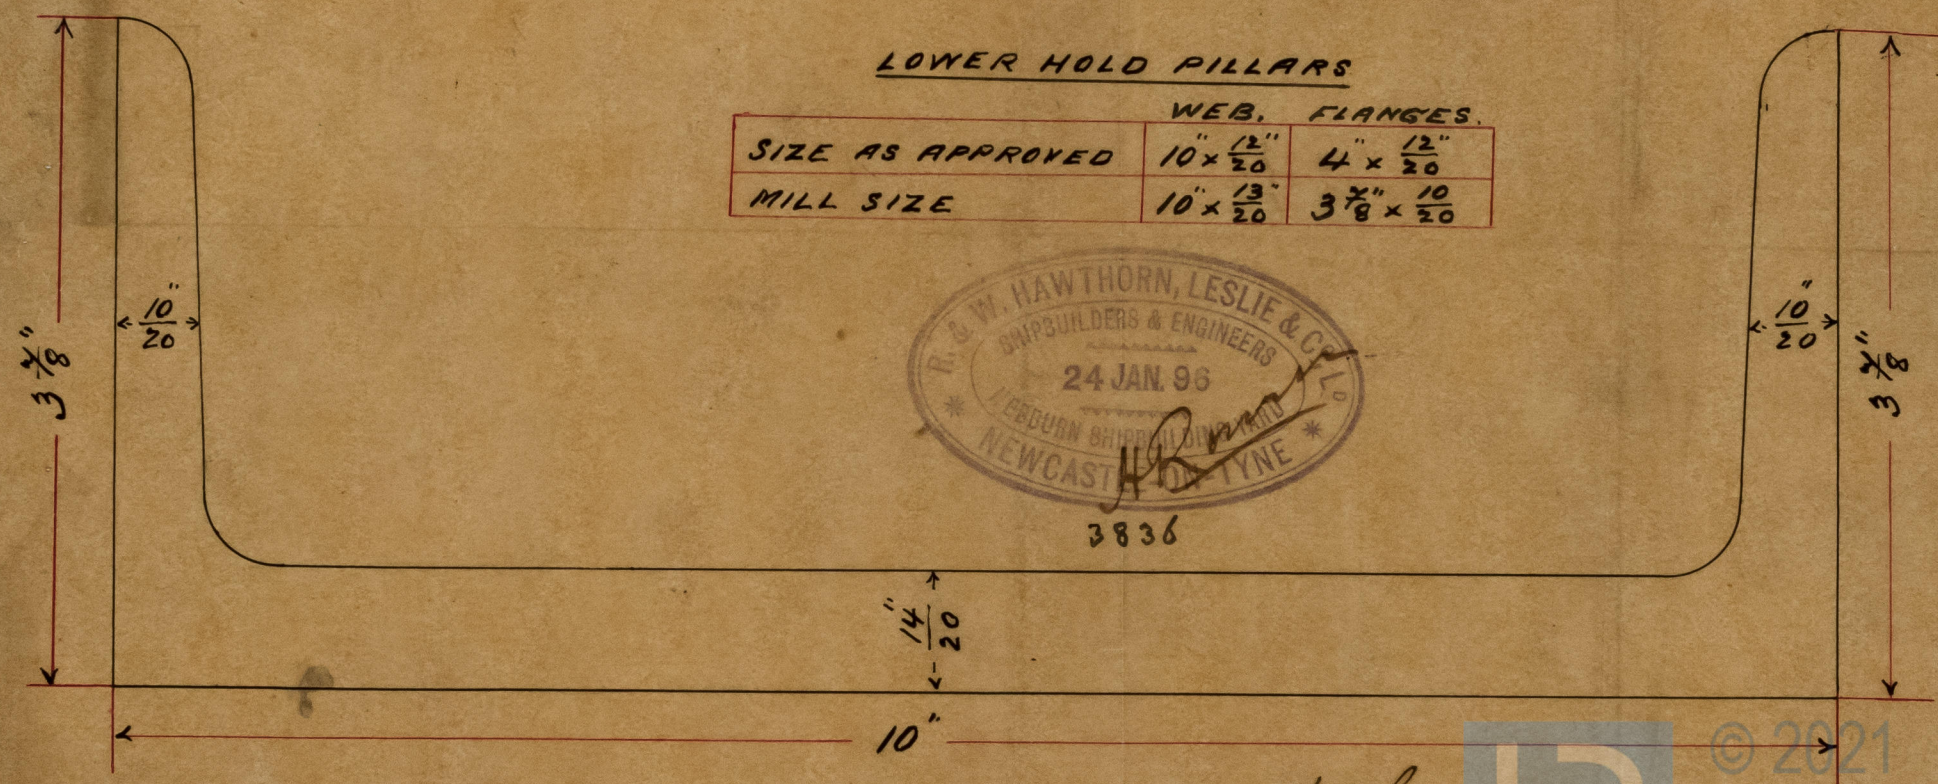 LOWER HOLD PILLARS
WEB. FLANGES.
SIZE AS APPROVED 10" x 12/20" 4" x 12/20"
MILL SIZE 10" x 13/20" 3 7/8" x 10/20
R. & W. HAWTHORN, LESLIE & CO. LD
SHIPBUILDERS & ENGINEERS
24 JAN. 96
SHIPBUILDING YARD
NEWCASTLE-ON-TYNE
3836
3 7/8"
10/20"
10/20"
3 7/8"
14/20"
10"
© 2021